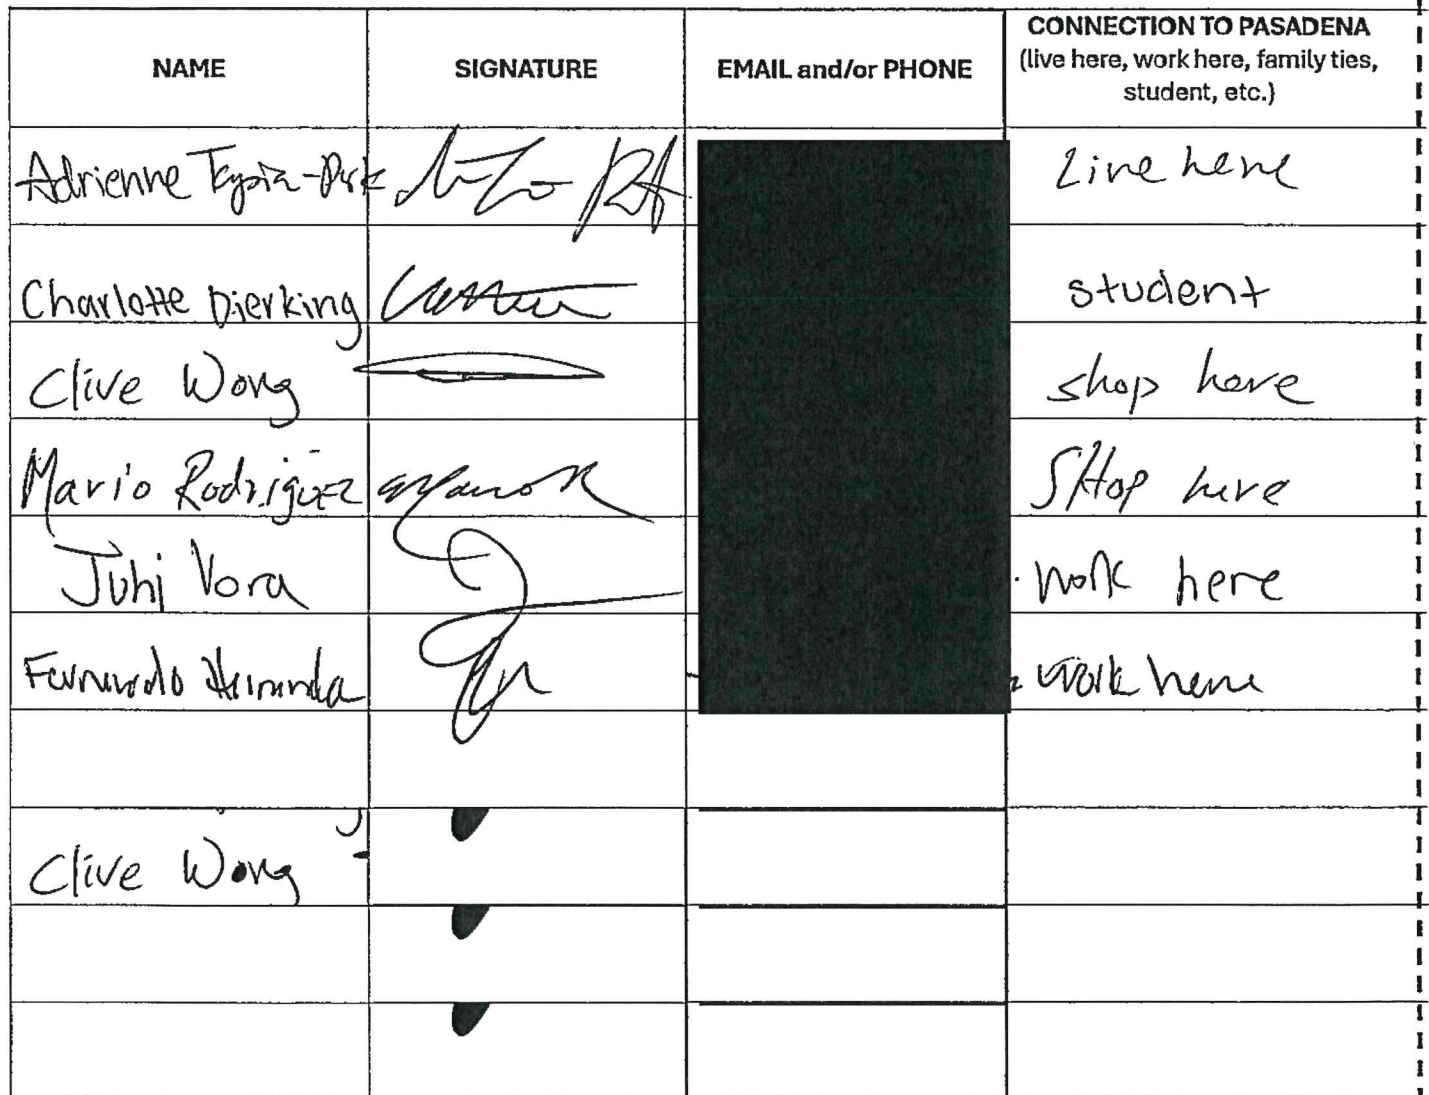 NAME
SIGNATURE
EMAIL and/or PHONE
CONNECTION TO PASADENA
(live here, work here, family ties,
student, etc.)
Adrienne
Live here
Charlotte Dierking
student
Clive Wong
shop here
Mario Rodriguez
SHop here
Juhi Vora
work here
work here
Clive Wong